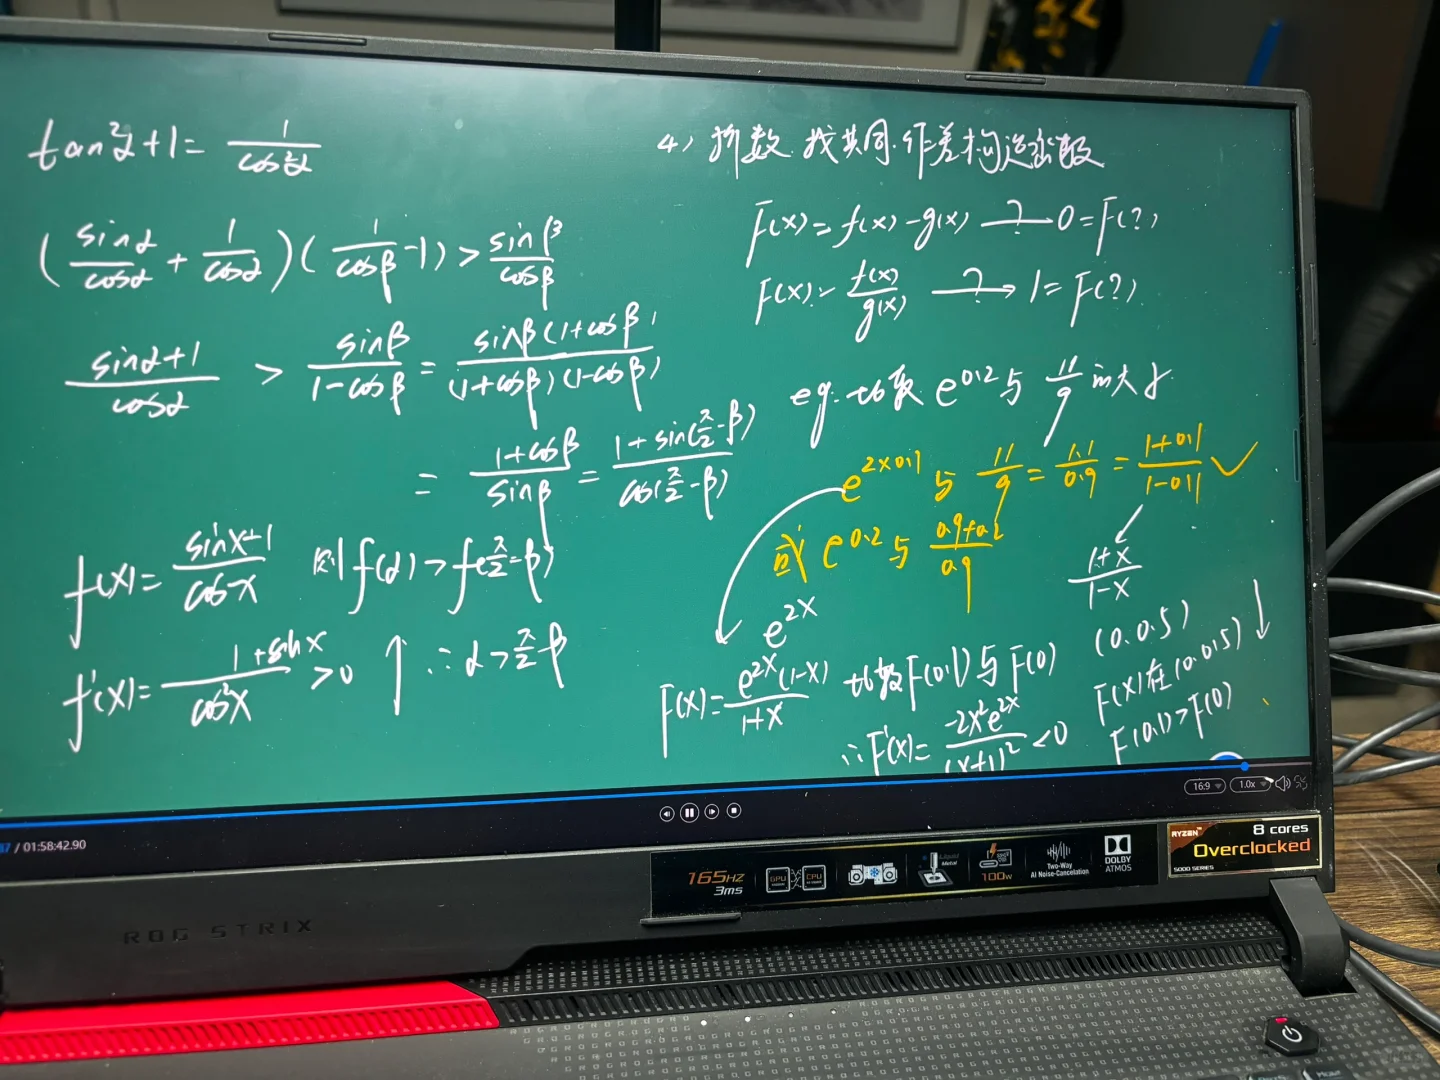 tan²α+1=1/cos²α
(sinα/cosα + 1/cosα)(1/cosβ -1) > sinβ/cosβ
sinα+1/cosα > sinβ/1-cosβ = sinβ(1+cosβ)/(1+cosβ)(1-cosβ)
= 1+cosβ/sinβ = 1+sin(π/2-β)/cos(π/2-β)
f(x)= sinx+1/cosx 则 f(α)>f(π/2-β)
f'(x)= 1+sinx/cos²x >0 ↑ ∴ α>π/2-β
4) 拆数.找共同.作差构造函数
F(x)=f(x)-g(x) ? 0=F(?)
F(x)= f(x)/g(x) ? 1=F(?)
eg. 比较 e^0.2 与 11/9 的大小
e^2×0.1 与 11/9 = 1.1/0.9 = 1+0.1/1-0.1 ✓
或 e^0.2 与 0.9+0.2/0.9
1+x/1-x
e^2x
(0.0.5)
F(x)= e^2x(1-x)/1+x 比较F(0.1)与F(0)
F(x)在(0.0.5) ↓
∴F'(x)= -2x²e^2x/(x+1)² <0
F(0.1)>F(0)
16:9
1.0x
/ 01:58:42.90
165HZ
3ms
GPU
CPU
Liquid Metal
100W
Two-Way
AI Noise-Cancelation
DOLBY
ATMOS
RYZEN
5000 SERIES
8 cores
Overclocked
ROG STRIX